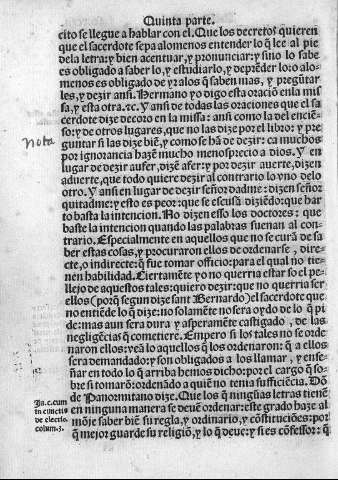 Quinta parte.
cito se llegue a hablar con el. Que los decretos quieren
que el sacerdote sepa alomenos entender lo q̃ lee al pie
dela letra: y bien acentuar, y pronunciar: y sino lo sabe
es obligado a saber lo, y estudiarlo, y deprẽder lo: o alo-
menos es obligado de yr alos q̃ saben mas, y pregũtar
les, y dezir ansi. Hermano yo digo esta oraciõ enla mis
sa, y esta otra. ⁊c. Y ansi de todas las oraciones que el sa
cerdote dize decoro en la missa: ansi como la del enciẽ-
so: y de otros lugares, que no las dize por el libro: y pre
guntar si las dize biẽ, y como se hã de dezir: ca muchos
por ignorancia hazẽ mucho menosprecio a dios. Y en
lugar de dezir aufer, dizẽ afer: y por dezir auerte, dizen
aduerte, que todo quiere dezir al contrario lo vno delo
otro. Y ans en lugar de dezir señor dadme: dizen señor
quitadme: y esto es peor: que se escusã diziẽdo: que har
to basta la intencion. No dizen esso los doctores: que
baste la intencion quando las palabras suenan al con
trario. Especialmente en aquellos que no se curã de sa
ber estas cosas, y procuraron ellos de ordenarse, direc-
cte, o indirecte: q̃ fue tomar officio: para el qual no tie-
nen habilidad. Ciertamẽte yo no querria estar so el pe-
llejo de aquestos tales: quiero dezir: que no querria ser
ellos (porq̃ segun dize sant Bernardo) el sacerdote que
no entiẽde lo q̃ dize: no solamẽte no sera oydo de lo q̃ pi
de: mas aun sera dura y asperamẽte castigado, de las
negligẽcias q̃ cometiere. Empero si los tales no se orde
naron ellos: vea lo aquellos q̃ los ordenaron: q̃ a ellos
sera demandado: y son obligados a los llamar, y ense-
ñar en todo lo q̃ arriba hemos dicho: por el cargo q̃ so-
bre si tomarõ: ordenãdo a quiẽ no tenia sufficiẽcia. Dõ
de Panormitano dize. Que los q̃ ningũas letras tienẽ
en ninguna manera se deuẽ ordenar: este grado haze al
mõje saber biẽ su regla, y ordinario, y cõstituciões: por
q̃ mejor guarde su religiõ, y lo q̃ deue: y si es cõfessor: q̃
Nota
In. c. cum
in cunctis
de electio.
colum. 3.